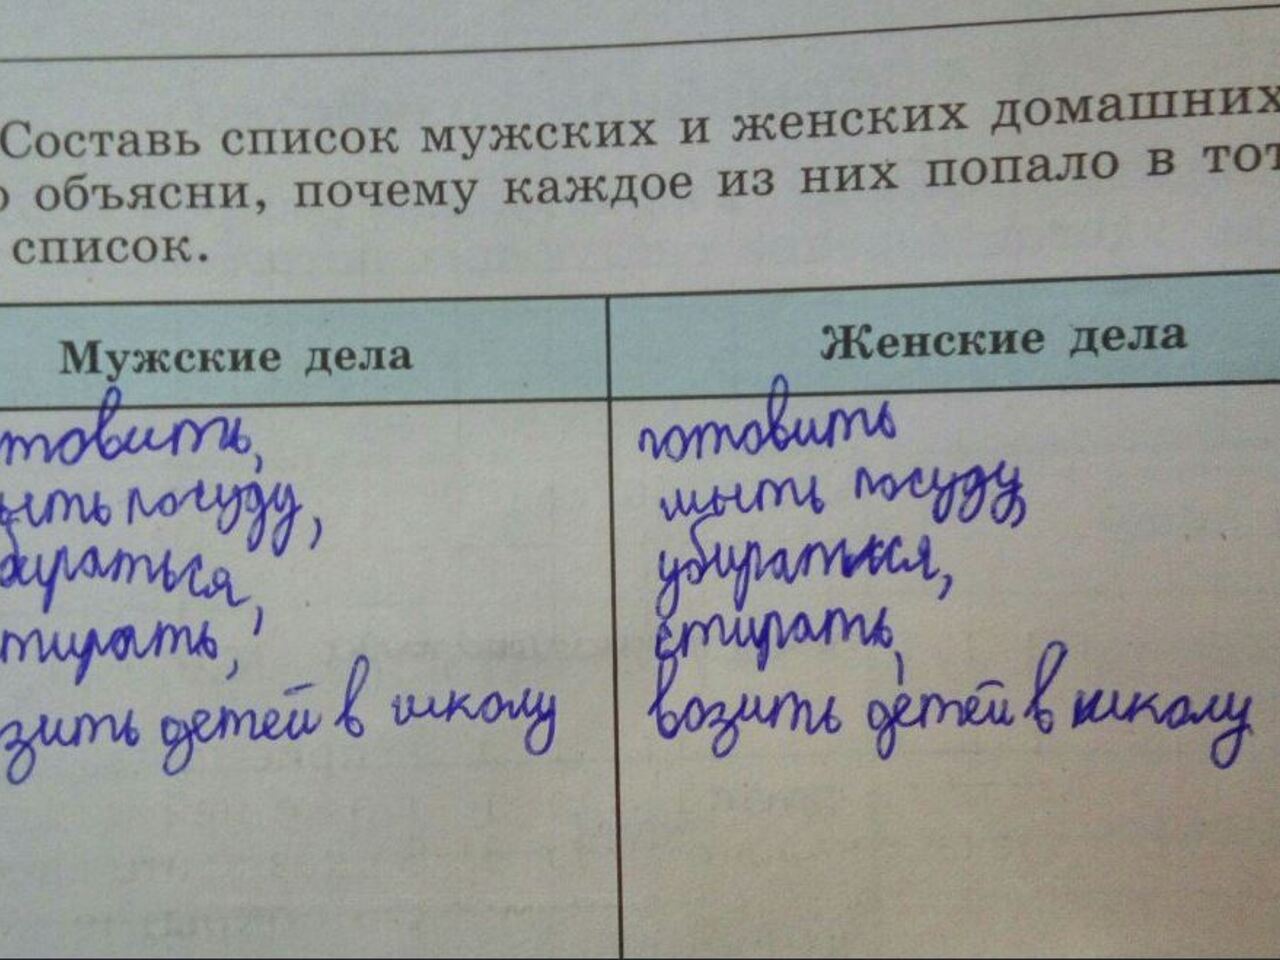 Составь список мужских и женских домашних
о объясни, почему каждое из них попало в тот
список.
Мужские дела
Женские дела
товить,
ыть посуду,
бираться,
тирать,
зить детей в школу
готовить
мыть посуду,
убираться,
стирать,
возить детей в школу